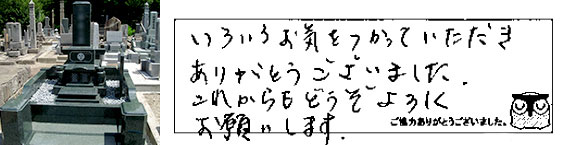 いろいろお気をつかっていただき
ありがとうございました.
これからもどうぞよろしく
お願いします.
ご協力ありがとうございました。